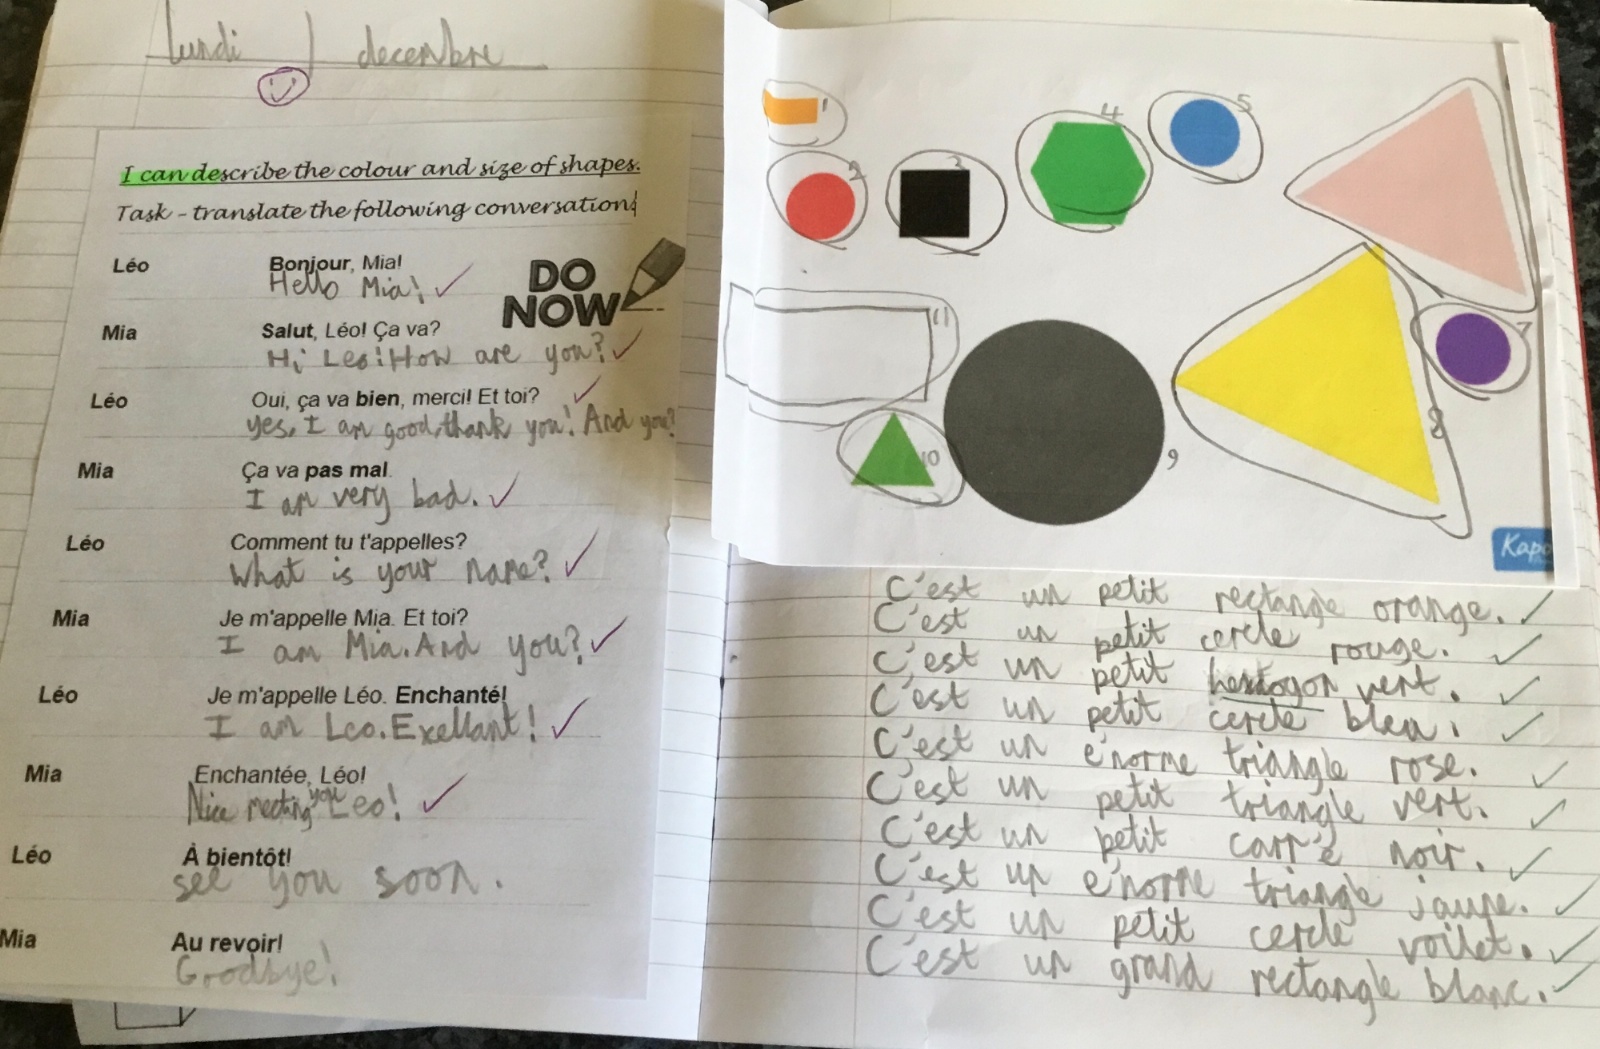 lundi 1 decembre
I can describe the colour and size of shapes.
Task - translate the following conversation
DO NOW
Léo Bonjour, Mia!
Hello Mia! ✓
Mia Salut, Léo! Ça va?
Hi Leo! How are you? ✓
Léo Oui, ça va bien, merci! Et toi? ✓
yes, I am good, thank you! And you?
Mia Ça va pas mal.
I am very bad. ✓
Léo Comment tu t'appelles?
What is your name? ✓
Mia Je m'appelle Mia. Et toi?
I am Mia. And you? ✓
Léo Je m'appelle Léo. Enchanté!
I am Leo. Exellant! ✓
Mia Enchantée, Léo!
Nice meeting you Leo! ✓
Léo À bientôt!
see you soon.
Mia Au revoir!
Goodbye!
1
2
3
4
5
11
7
8
10
9
Kapo
C'est un petit rectangle orange. ✓
C'est un petit cercle rouge. ✓
C'est un petit vert. ✓
C'est un petit cercle bleu. ✓
C'est un énorme triangle rose. ✓
C'est un petit triangle vert. ✓
C'est un petit carré noir. ✓
C'est un énorme triangle jaune. ✓
C'est un petit cercle voilet. ✓
C'est un grand rectangle blanc. ✓